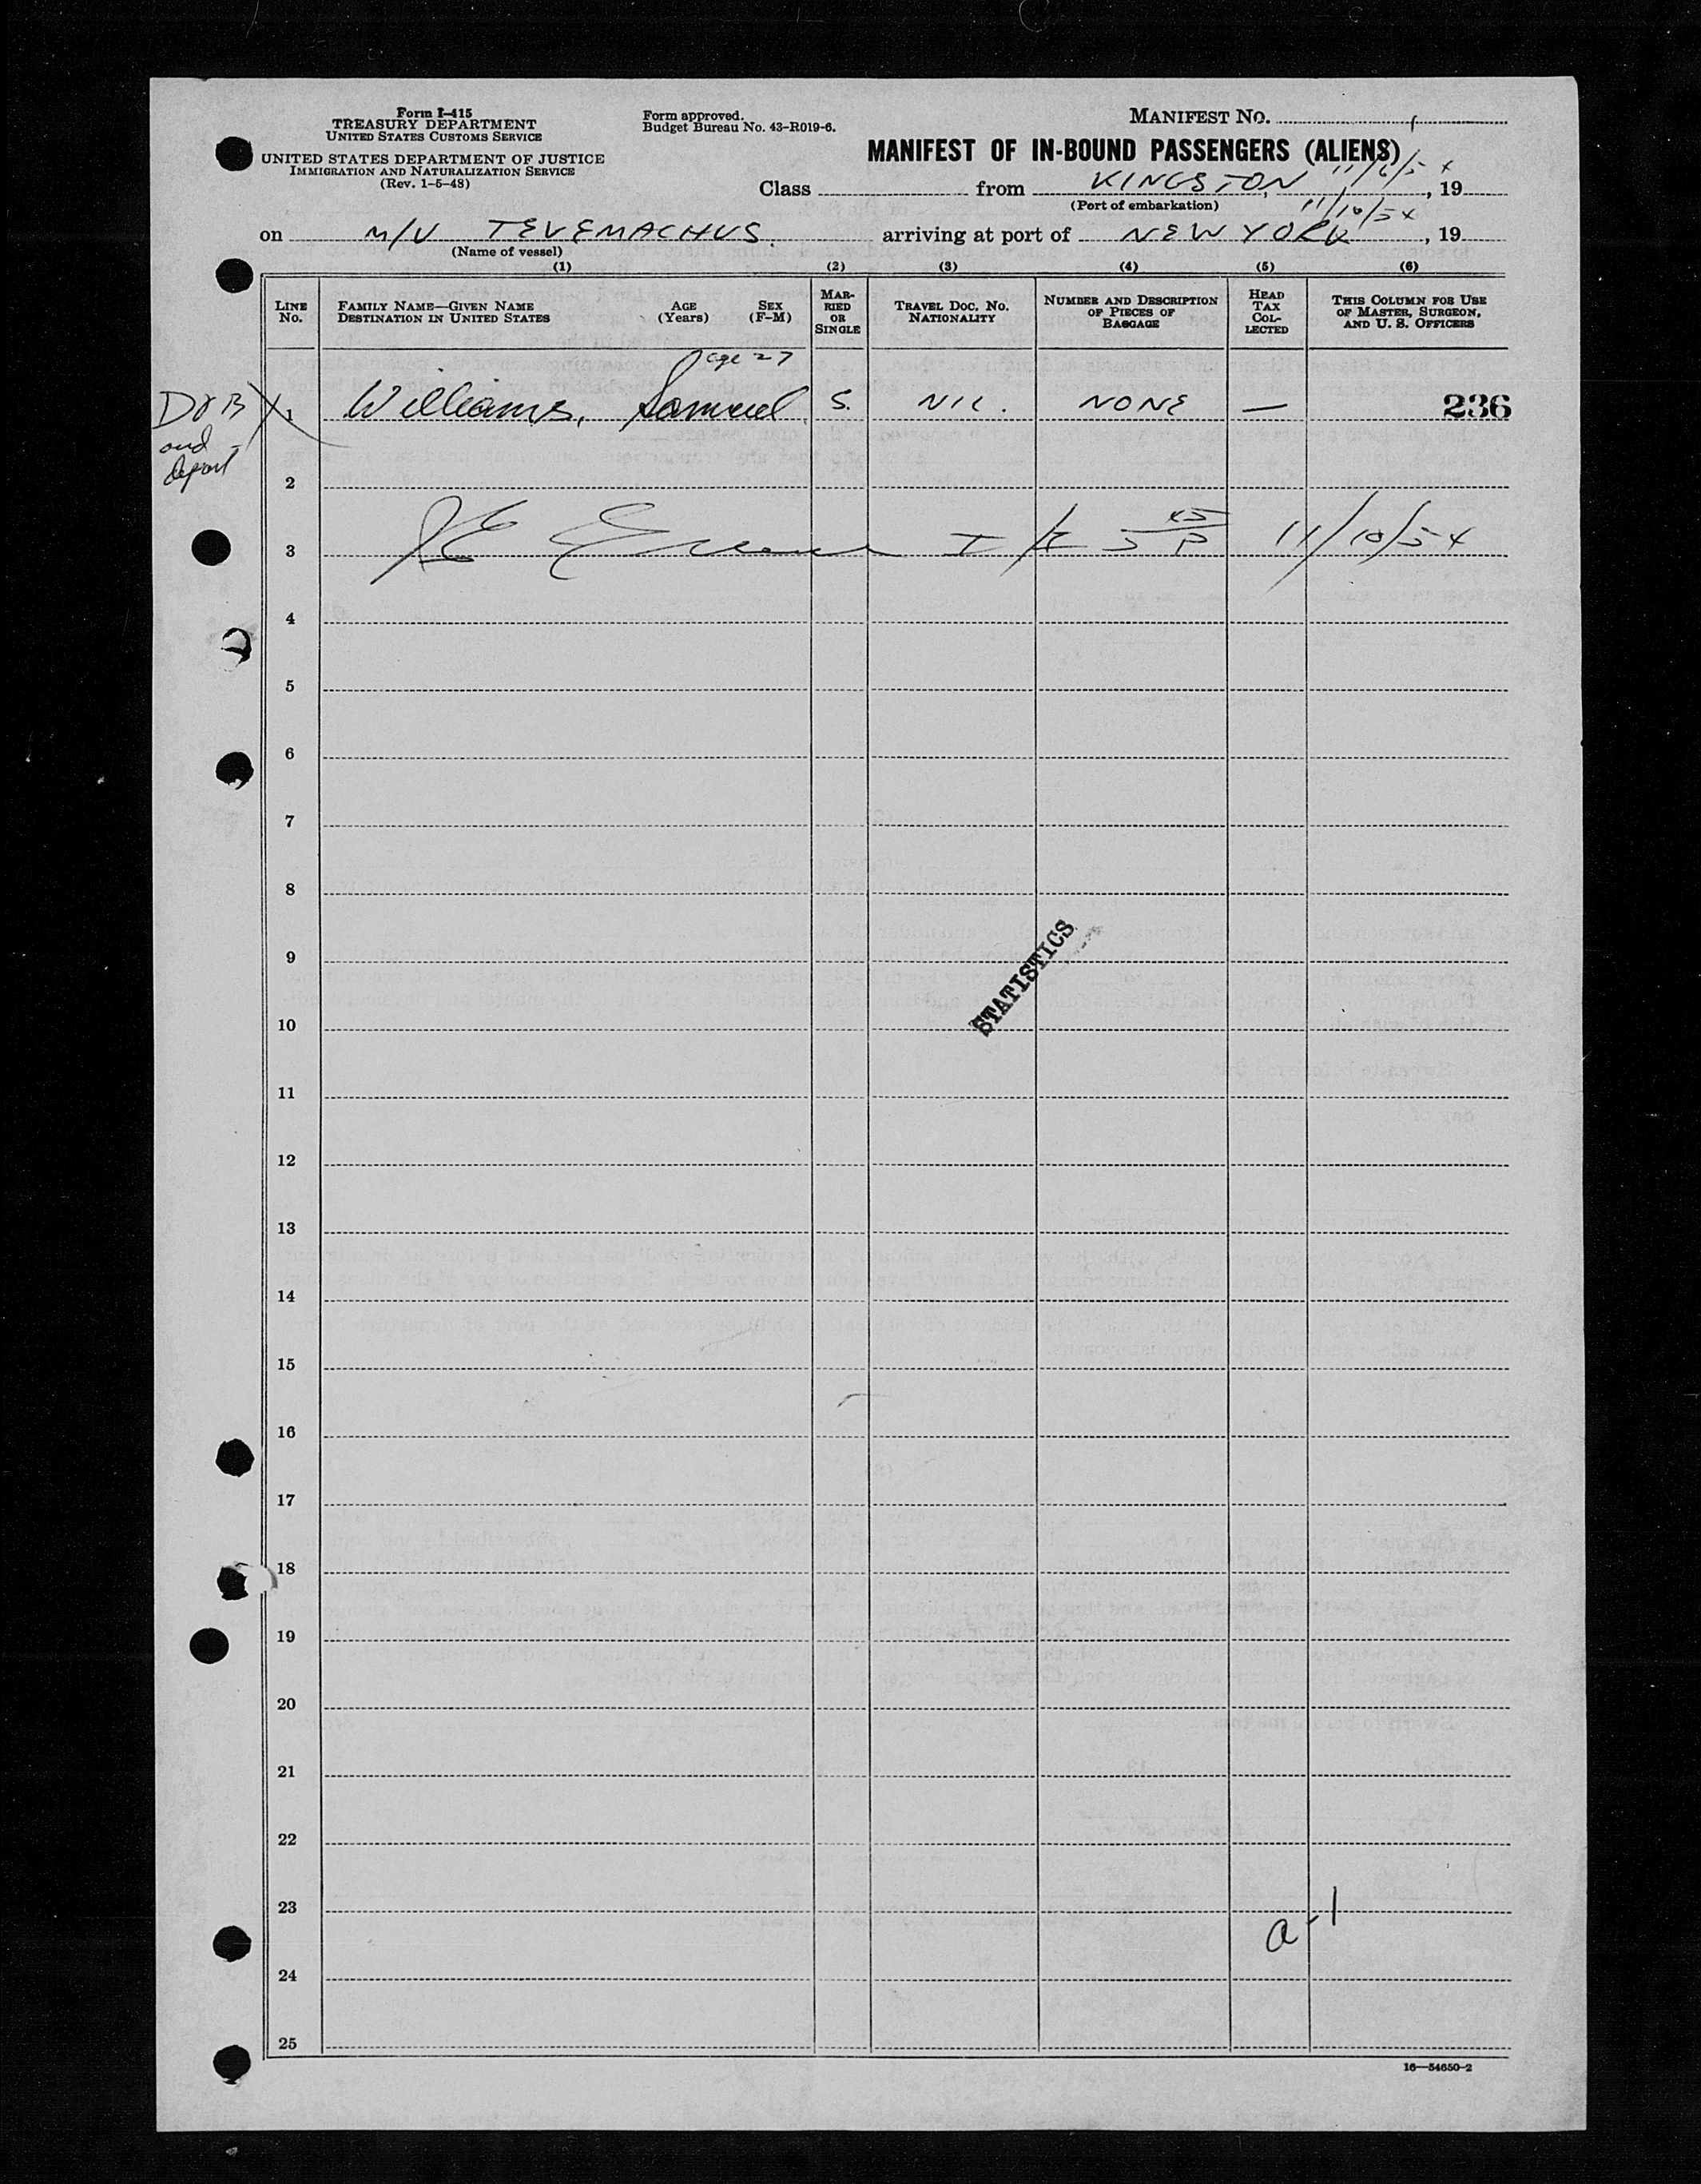 Form I-415
TREASURY DEPARTMENT
UNITED STATES CUSTOMS SERVICE
UNITED STATES DEPARTMENT OF JUSTICE
IMMIGRATION AND NATURALIZATION SERVICE
(Rev. 1-5-48)
Form approved.
Budget Bureau No. 43-R019-6.
MANIFEST NO. 1
MANIFEST OF IN-BOUND PASSENGERS (ALIENS)
Class from KINGSTON 11/6/54, 19
(Port of embarkation)
on M/V TELEMACHUS arriving at port of NEW YORK 11/10/54, 19
(Name of vessel)
(1) (2) (3) (4) (5) (6)
LINE NO. FAMILY NAME—GIVEN NAME DESTINATION IN UNITED STATES AGE (Years) SEX (F-M) MARRIED OR SINGLE TRAVEL DOC. NO. NATIONALITY NUMBER AND DESCRIPTION OF PIECES OF BAGGAGE HEAD TAX COLLECTED THIS COLUMN FOR USE OF MASTER, SURGEON, AND U. S. OFFICERS
age 27
D & B X 1 Williams, Samuel S. NIL. NONE — 236
and
deport
2
3 11/10/54
4
5
6
7
8
9
STATISTICS
10
11
12
13
14
15
16
17
18
19
20
21
22
23
a-1
24
25
16—54650-2